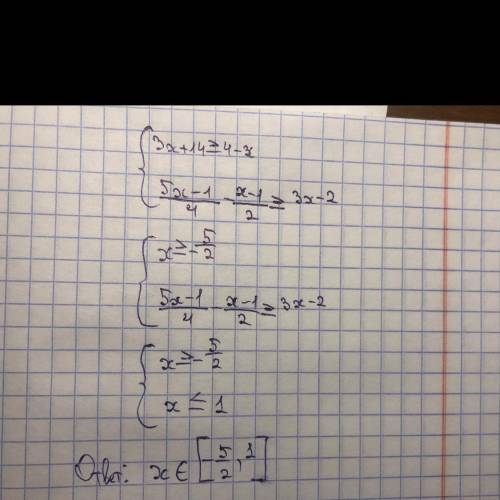 3x+14≥4-x
(5x-1)/4 - (x-1)/2 ≥ 3x-2
x≥-5/2
(5x-1)/4 - (x-1)/2 ≥ 3x-2
x≥-5/2
x≤1
Ответ: x∈[-5/2; 1]